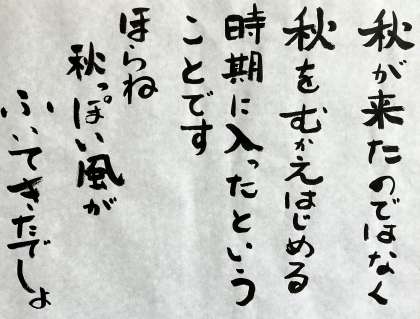 秋が来たのではなく
秋をむかえはじめる
時期に入ったという
ことです
ほらね
秋っぽい風が
ふいてきたでしょ